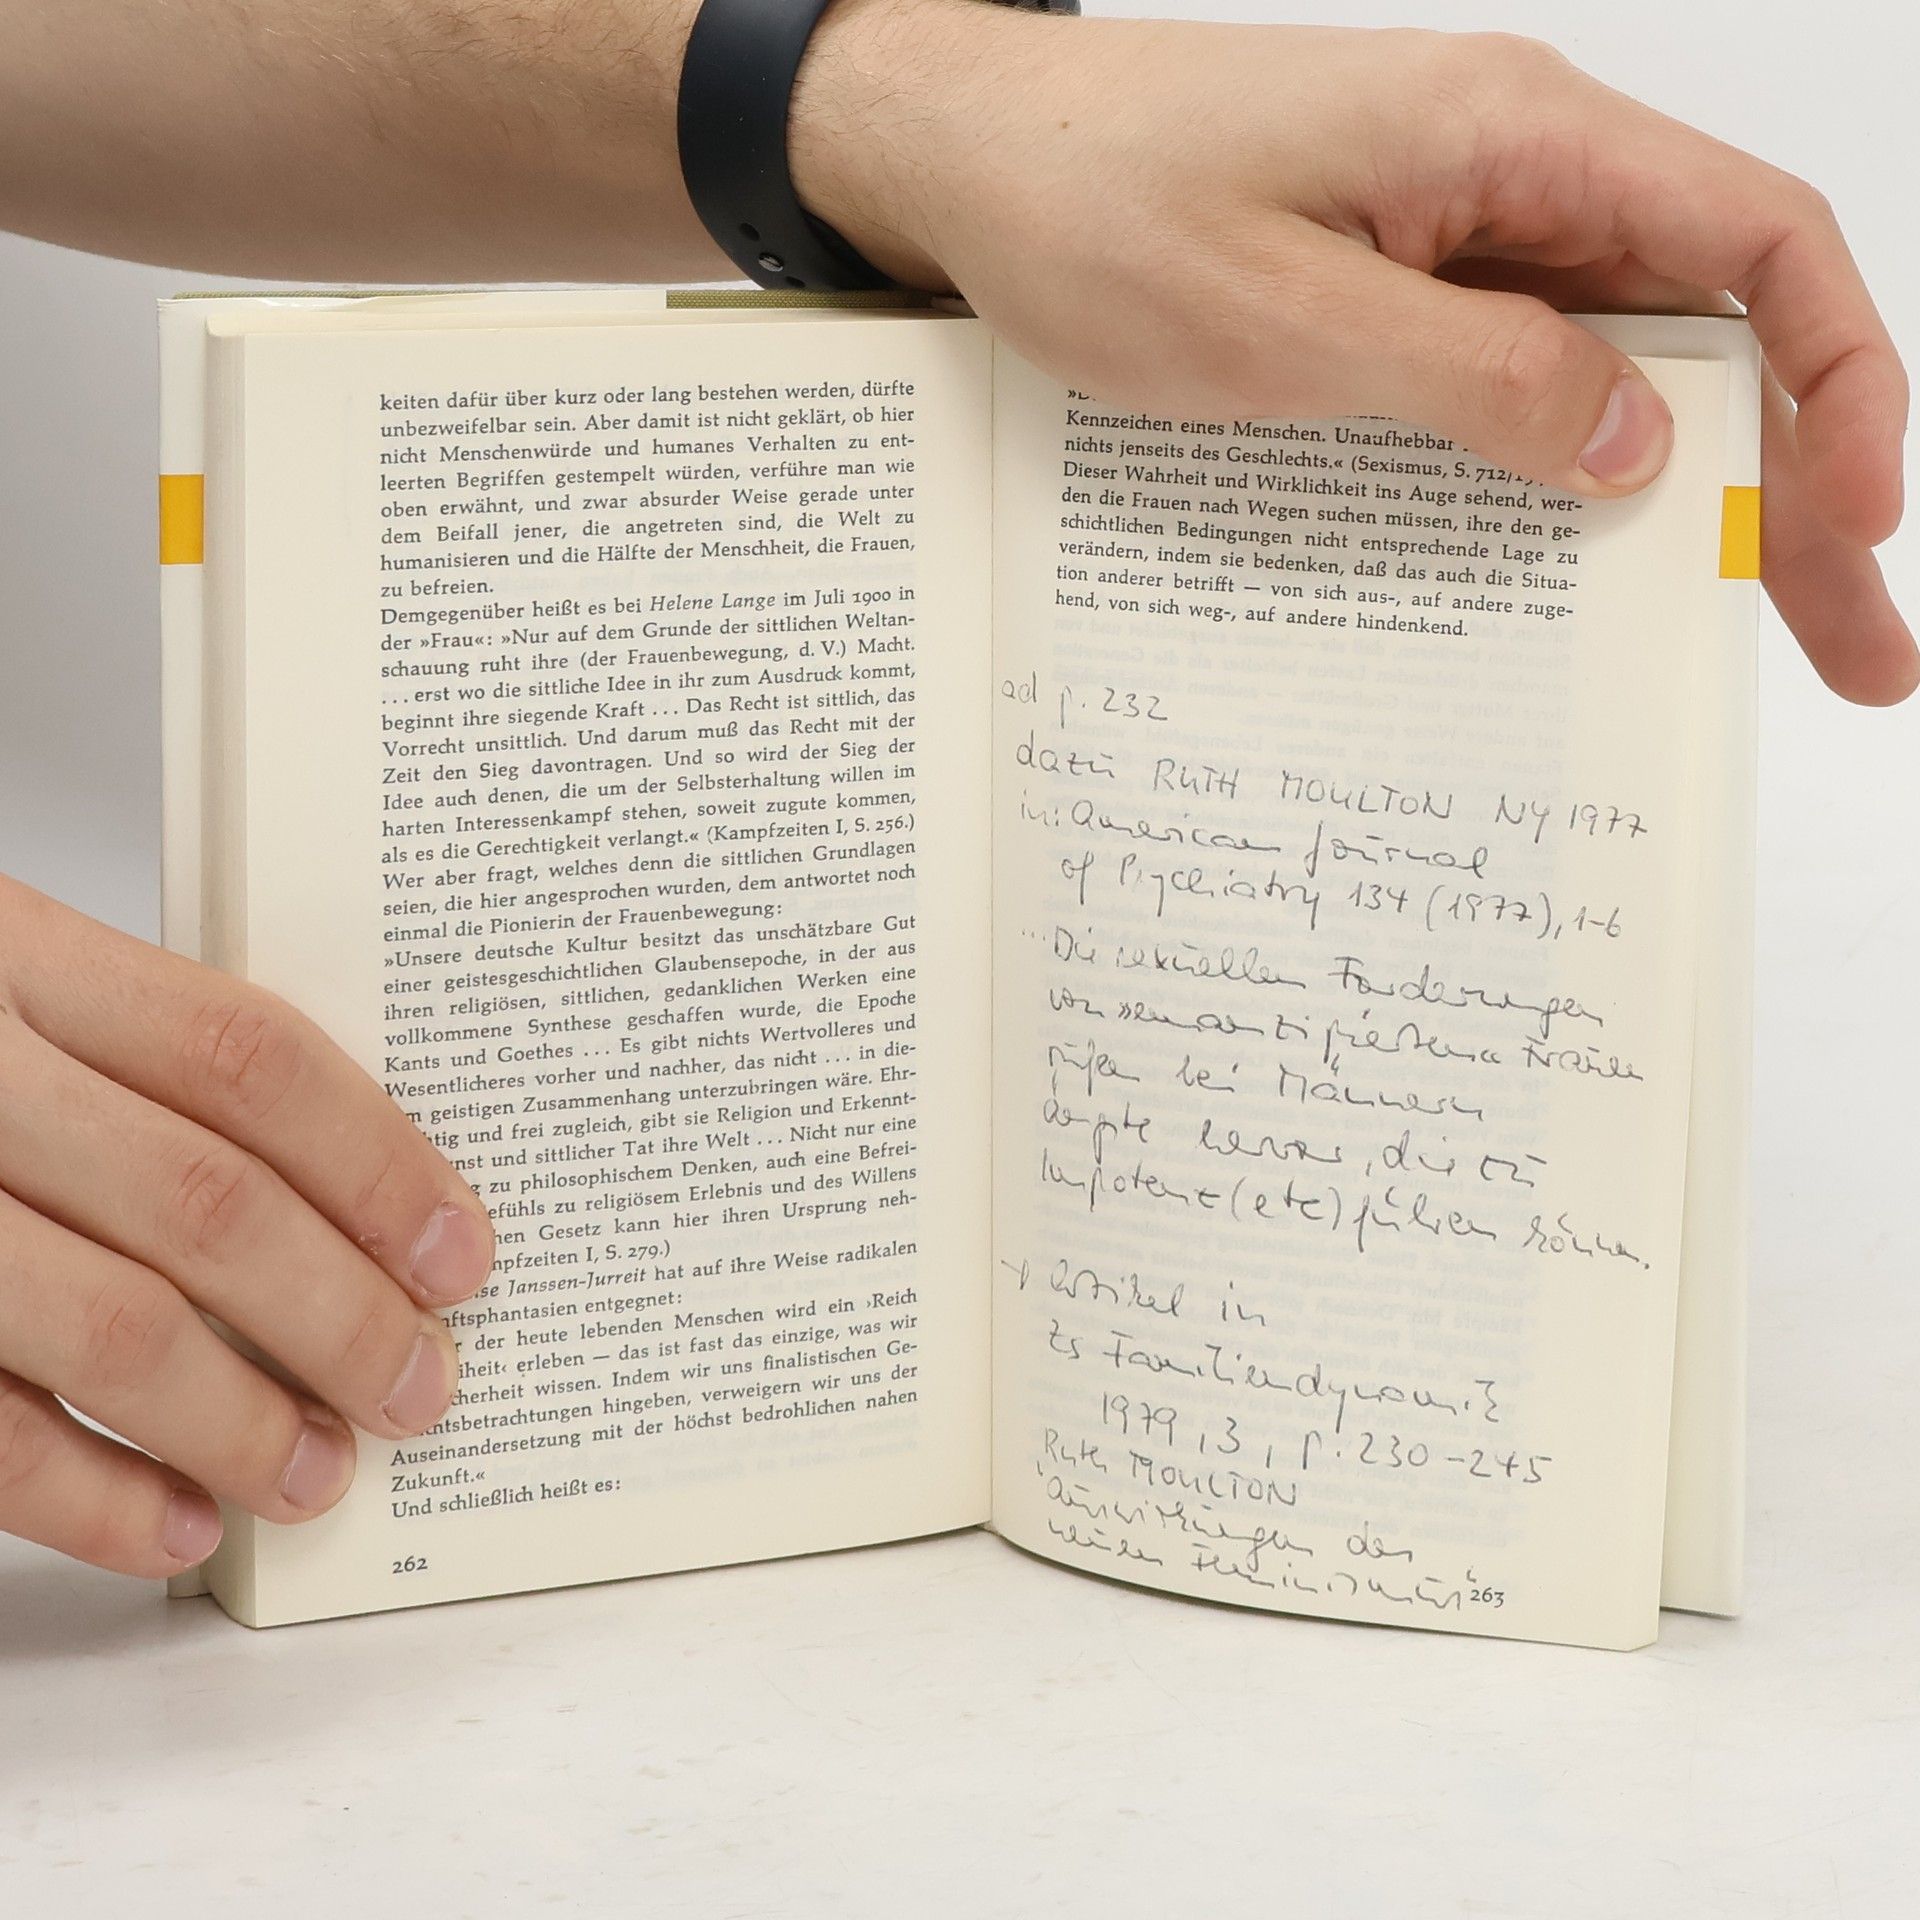 keiten dafür über kurz oder lang bestehen werden, dürfte
unbezweifelbar sein. Aber damit ist nicht geklärt, ob hier
nicht Menschenwürde und humanes Verhalten zu ent-
leerten Begriffen gestempelt würden, verführe man wie
oben erwähnt, und zwar absurder Weise gerade unter
dem Beifall jener, die angetreten sind, die Welt zu
humanisieren und die Hälfte der Menschheit, die Frauen,
zu befreien.
Demgegenüber heißt es bei Helene Lange im Juli 1900 in
der »Frau«: »Nur auf dem Grunde der sittlichen Weltan-
schauung ruht ihre (der Frauenbewegung, d. V.) Macht.
. . . erst wo die sittliche Idee in ihr zum Ausdruck kommt,
beginnt ihre siegende Kraft . . . Das Recht ist sittlich, das
Vorrecht unsittlich. Und darum muß das Recht mit der
Zeit den Sieg davontragen. Und so wird der Sieg der
Idee auch denen, die um der Selbsterhaltung willen im
harten Interessenkampf stehen, soweit zugute kommen,
als es die Gerechtigkeit verlangt.« (Kampfzeiten I, S. 256.)
Wer aber fragt, welches denn die sittlichen Grundlagen
seien, die hier angesprochen wurden, dem antwortet noch
einmal die Pionierin der Frauenbewegung:
»Unsere deutsche Kultur besitzt das unschätzbare Gut
einer geistesgeschichtlichen Glaubensepoche, in der aus
ihren religiösen, sittlichen, gedanklichen Werken eine
vollkommene Synthese geschaffen wurde, die Epoche
Kants und Goethes . . . Es gibt nichts Wertvolleres und
Wesentlicheres vorher und nachher, das nicht . . . in die-
m geistigen Zusammenhang unterzubringen wäre. Ehr-
htig und frei zugleich, gibt sie Religion und Erkennt-
nst und sittlicher Tat ihre Welt . . . Nicht nur eine
g zu philosophischem Denken, auch eine Befrei-
efühls zu religiösem Erlebnis und des Willens
hen Gesetz kann hier ihren Ursprung neh-
mpfzeiten I, S. 279.)
se Janssen-Jurreit hat auf ihre Weise radikalen
ftsphantasien entgegnet:
r der heute lebenden Menschen wird ein ›Reich
iheit‹ erleben — das ist fast das einzige, was wir
cherheit wissen. Indem wir uns finalistischen Ge-
htsbetrachtungen hingeben, verweigern wir uns der
Auseinandersetzung mit der höchst bedrohlichen nahen
Zukunft.«
Und schließlich heißt es:
262
Kennzeichen eines Menschen. Unaufhebbar
nichts jenseits des Geschlechts.« (Sexismus, S. 712/
Dieser Wahrheit und Wirklichkeit ins Auge sehend, wer-
den die Frauen nach Wegen suchen müssen, ihre den ge-
schichtlichen Bedingungen nicht entsprechende Lage zu
verändern, indem sie bedenken, daß das auch die Situa-
tion anderer betrifft — von sich aus-, auf andere zuge-
hend, von sich weg-, auf andere hindenkend.
ad p. 232
dazu RUTH MOULTON NY 1977
in: American Journal
of Psychiatry 134 (1977), 1-6
... Die sexuellen Forderungen
von »emanzipierten« Frauen
rufen bei Männern
Ängste hervor, die zu
Impotenz (etc) führen können.
→ Artikel in
Zs Familiendynamik
1979, 3, p. 230-245
Ruth MOULTON
„Auswirkungen des
neuen Feminismus“
263